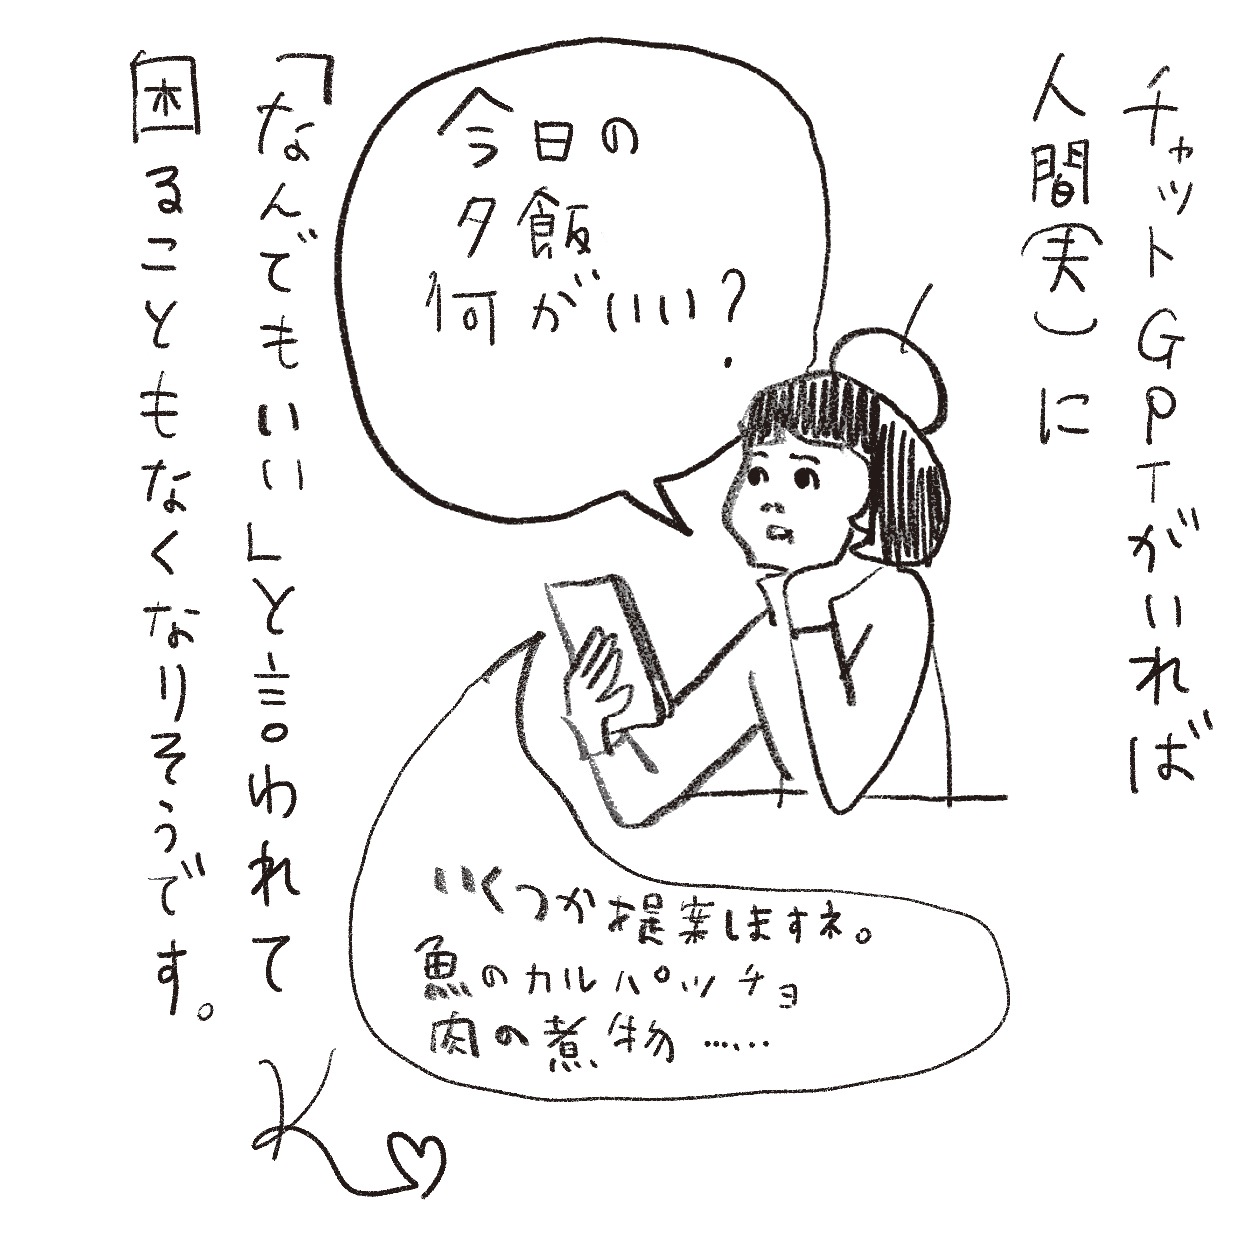 チャットGPTがいれば
人間(夫)に
今日の
夕飯
何がいい?
いくつか提案しますネ。
魚のカルパッチョ
肉の煮物……
「なんでもいい」と言われて
困ることもなくなりそうです。
K